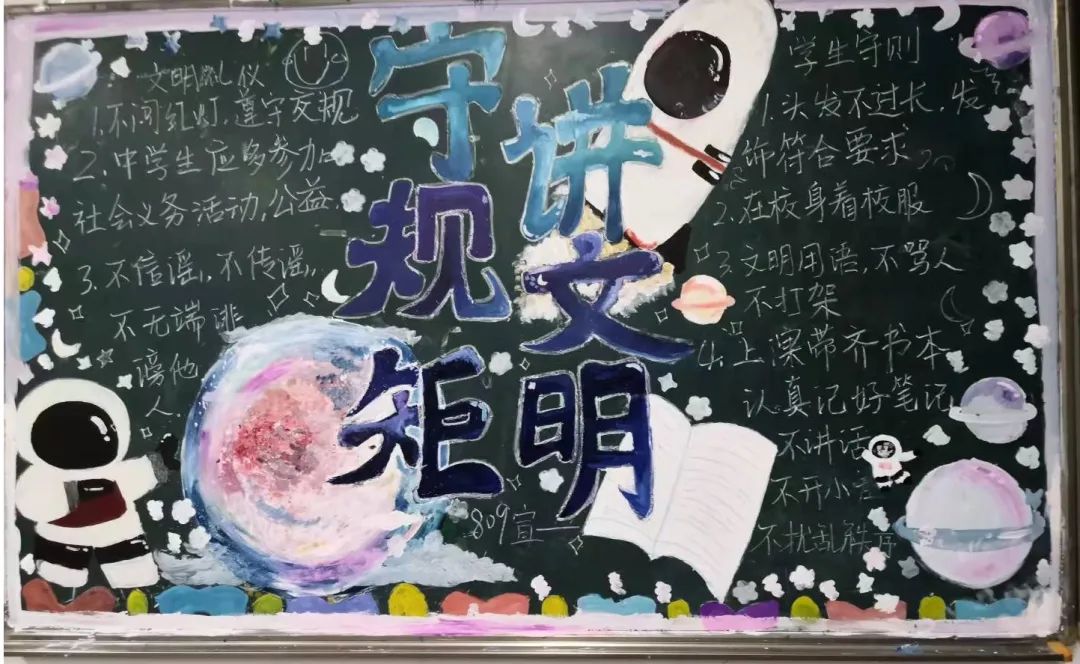 文明礼仪
1.不闯红灯,遵守交规
2.中学生应多参加
社会义务活动,公益
3.不信谣,不传谣,
不无端诽
谤他
人.
讲文明
守规矩
809宣
学生守则
1.头发不过长,发
饰符合要求
2.在校身着校服
3.文明用语,不骂人
不打架
4.上课带齐书本
认真记好笔记
不讲话
不开小
不扰乱秩序